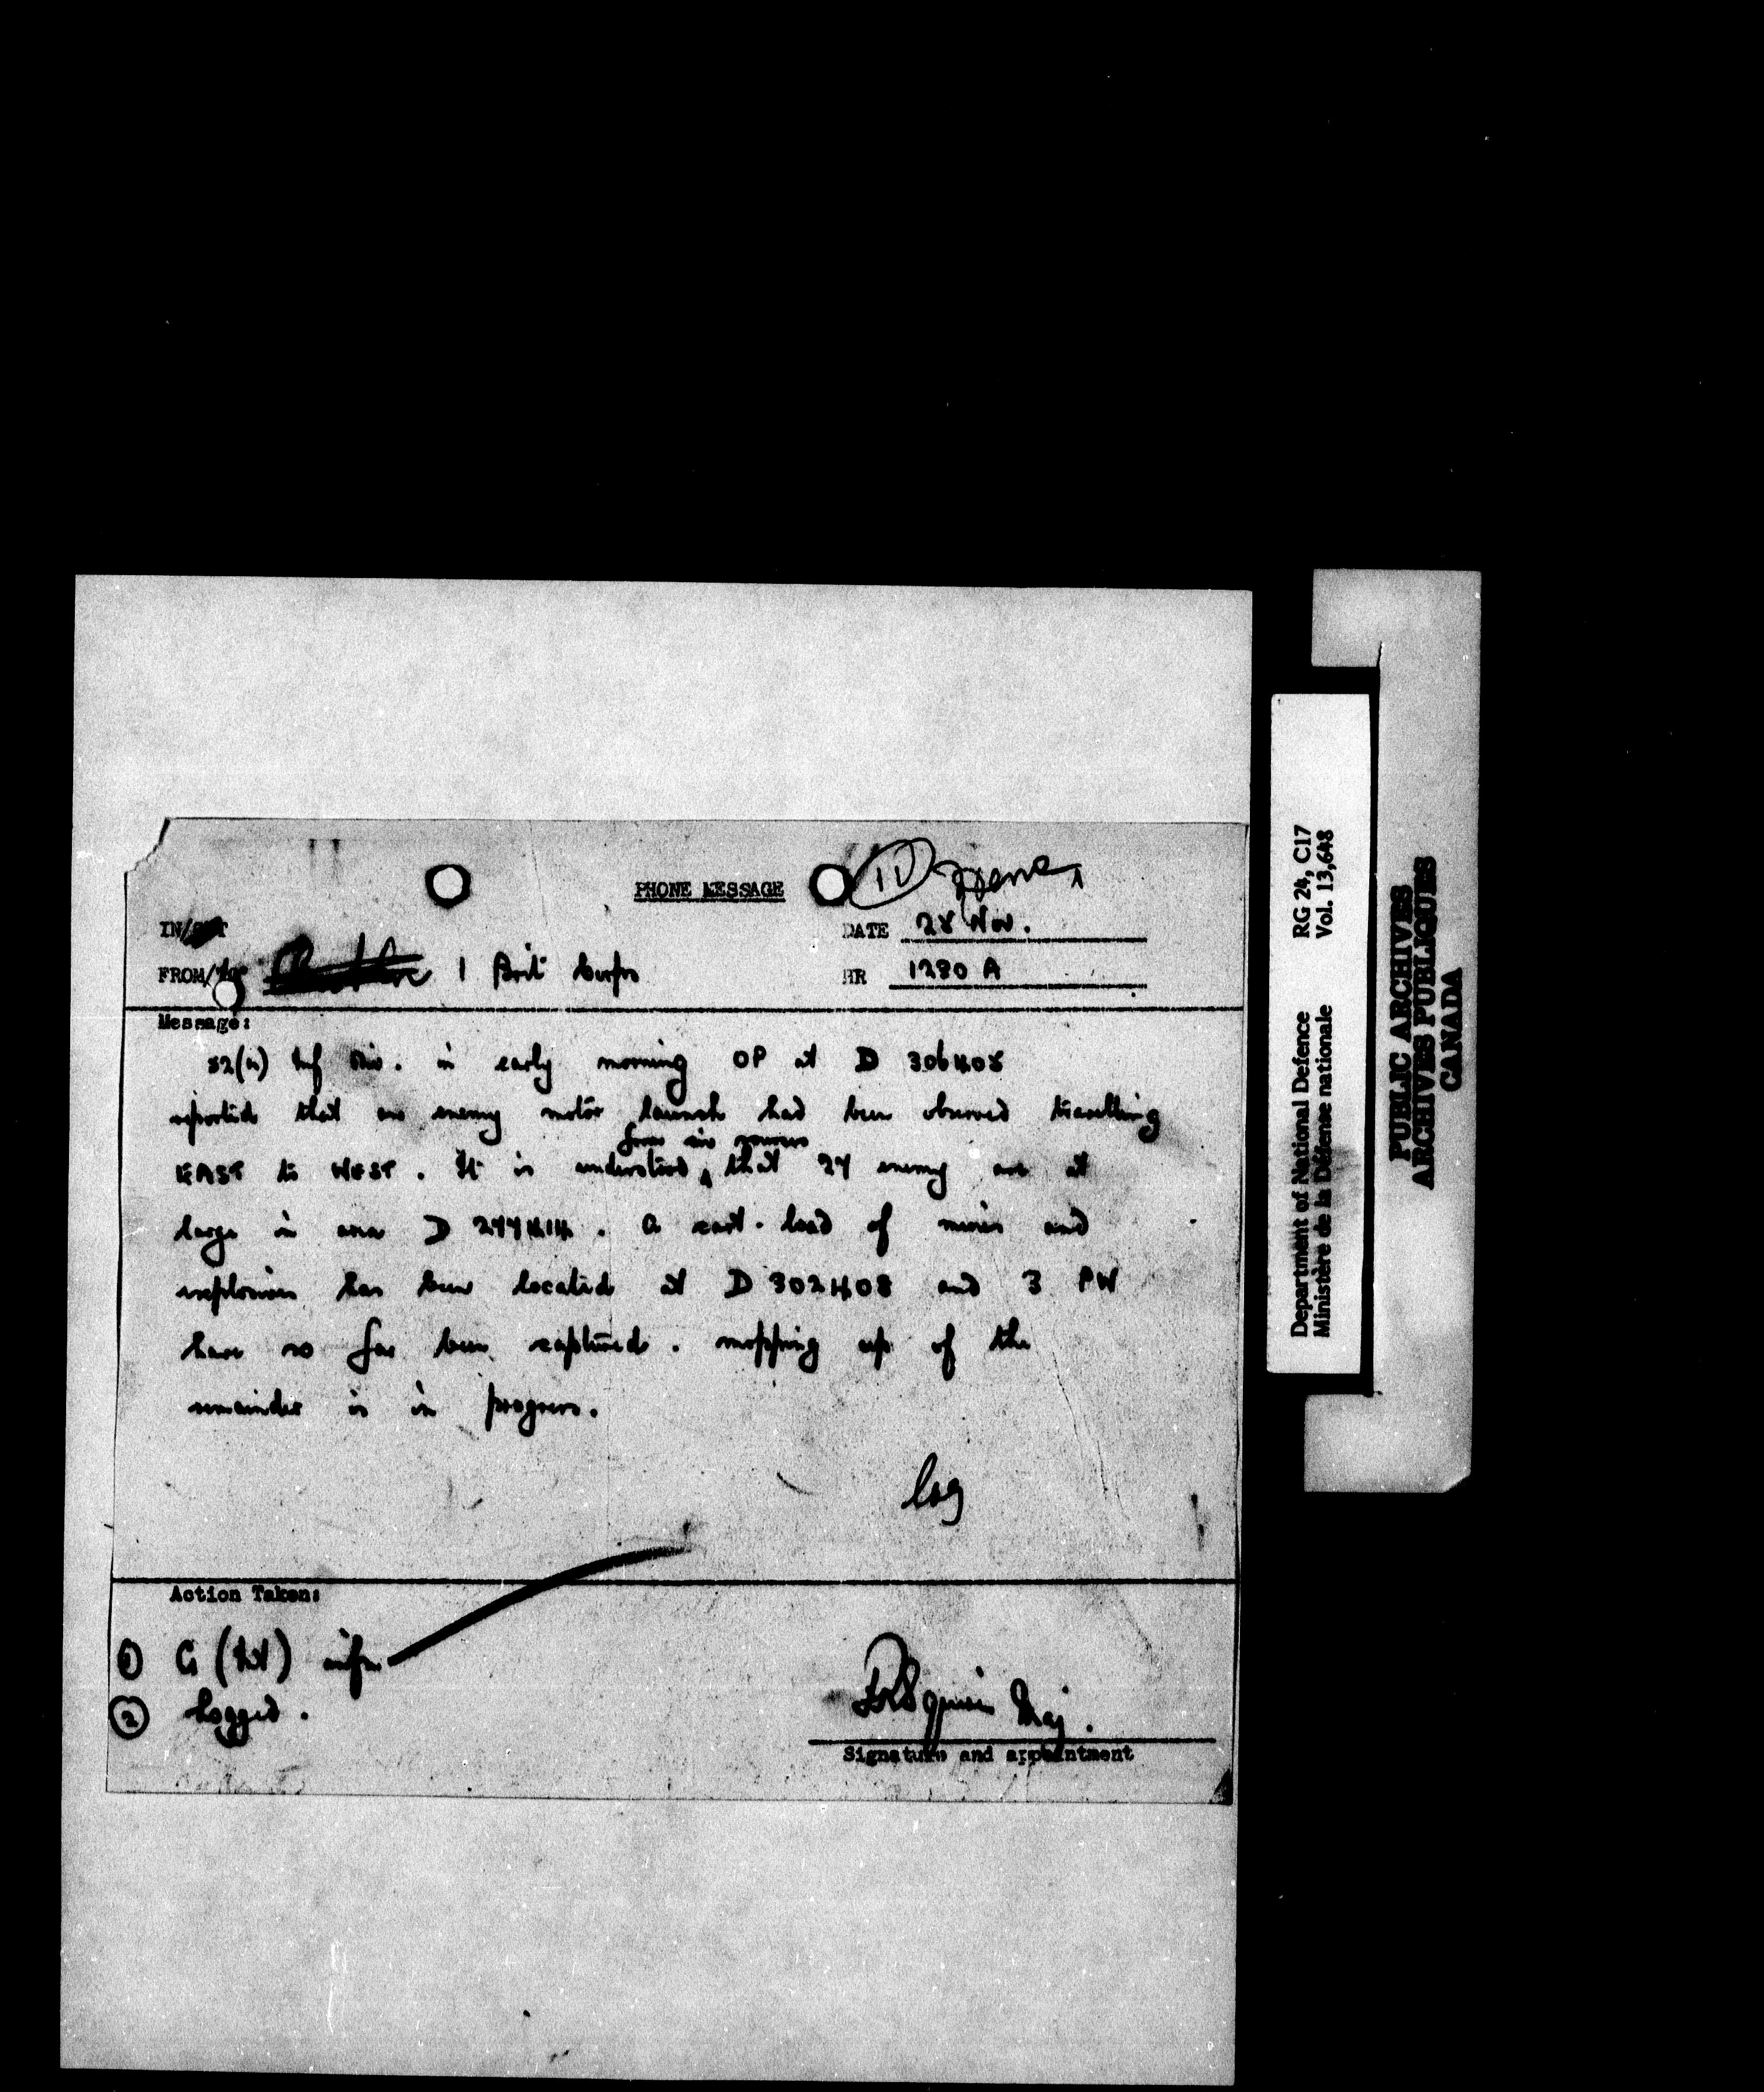 PHONE MESSAGE
IN/OUT
DATE 28 Nov.
FROM/To 1 Brit Corps
HR 1230 A
Message:
52(L) Inf Div. in early morning OP at D 306408
reported that an enemy motor launch had been observed travelling
from air sources
EAST to WEST. It is understood that 24 enemy are at
large in area D 277414. A cart-load of mines and
explosives has been located at D 302408 and 3 PW
have so far been captured. Mopping up of the
remainder is in progress.
Log
Action Taken:
① G (Int) infm
② Logged.
Maj.
Signature and appointment
Department of National Defence RG 24, C17
Ministère de la Défense nationale Vol. 13,648
PUBLIC ARCHIVES
ARCHIVES PUBLIQUES
CANADA